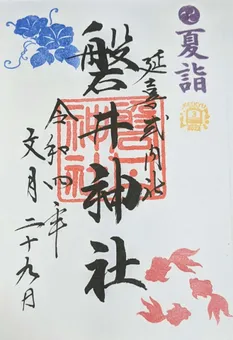 夏詣
延喜式内社
磐井神社
令和四年
文月二十九日